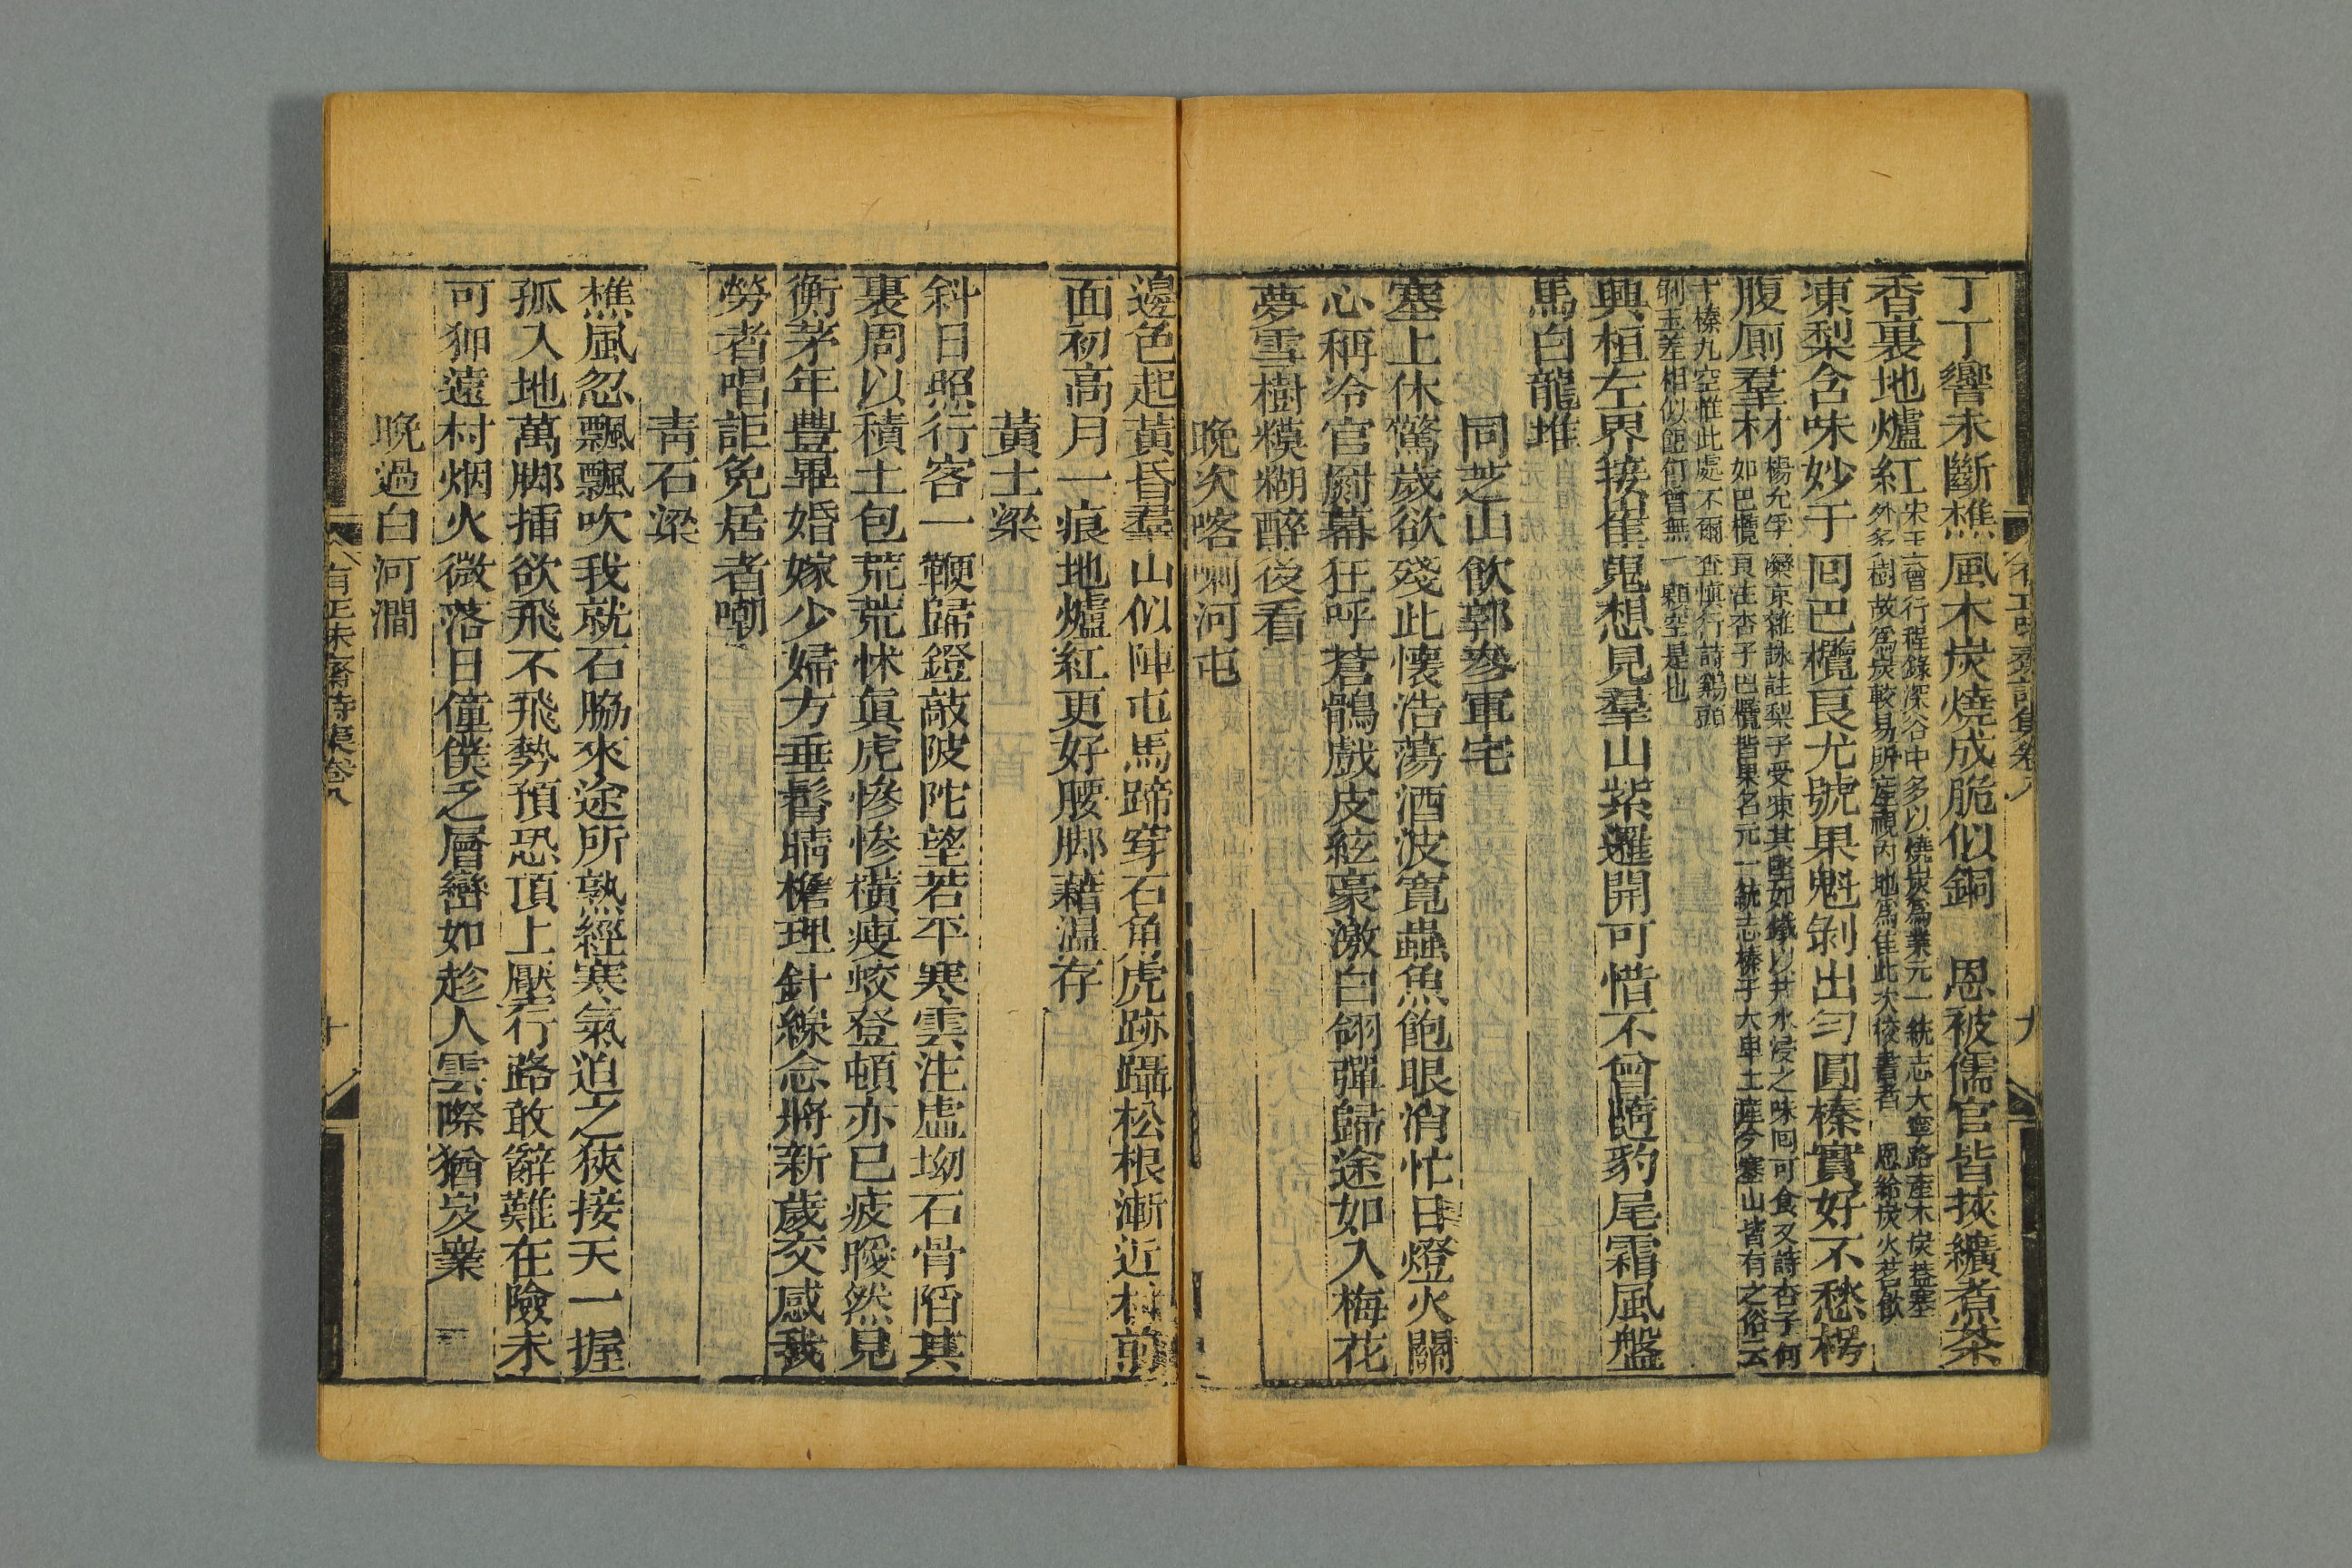 丁丁響未斷樵風木炭燒成脆似銅　恩被儒官皆挾纊煮茶
香裏地爐紅
宋王曾行程錄深谷中多以燒炭爲業元一統志大寧路產木炭葢塞
外多樹故爲炭較易所產視內地爲佳此次校書者　恩給炭火茗飲
凍梨含味妙于回巴欖良尤號果魁剝出勻圓榛實好不愁楛
腹廁羣材
楊允孚灤京雜詠註梨子受凍其堅如鐵以井水浸之味回可食又詩杏子何
如巴欖良注杏子巴欖皆果名元一統志榛子大卑土產今塞山皆有之俗云
十榛九空惟此處不爾查愼行詩鷄頭
剝玉差相似飽何曾無一顆空是也
興桓左界接崔嵬想見羣山紫邏開可惜不曾隨豹尾霜風盤
馬白龍堆
同芝山飲郭參軍宅
塞上休驚歲欲殘此懷浩蕩酒波寬蟲魚飽眼消忙日燈火關
心稱冷官廚幕狂呼蒼鶻戲皮絃豪激白翎彈歸途如入梅花
夢雪樹糢糊醉後看
晚次喀喇河屯
邊色起黃昏羣山似陣屯馬蹄穿石角虎跡躡松根漸近村前
面初高月一痕地爐紅更好腰脚藉温存
黃土梁
斜日照行客一鞭歸鐙敲陂陀望若平寒雲注虛坳石骨陷其
裏周以積土包荒荒怵眞虎慘慘橫瘦蛟登頓亦已疲曖然見
衡茅年豐畢婚嫁少婦方垂髾晴檐理針線念將新歲交感我
勞者唱詎免居者嘲
靑石梁
樵風忽飄飄吹我就石脇來途所熟經寒氣迫之狹接天一握
孤入地萬脚插欲飛不飛勢預恐頂上壓行路敢辭難在險未
可狎遠村烟火微落日僮僕乏層巒如趁人雲際猶岌嶪
晚過白河澗
有正味齋詩集卷八
十
有正味齋詩集卷八
九